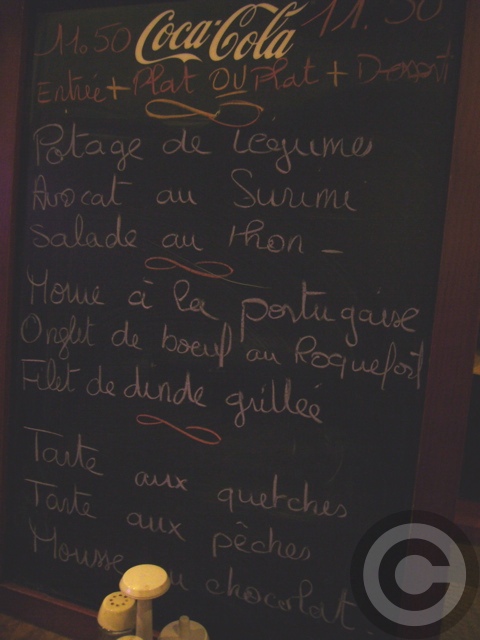 11.50 Coca-Cola 11.50
Entrée + Plat OU Plat + Dessert
Potage de légumes
Avocat au Surimi
Salade au thon -
Morue à la portugaise
Onglet de boeuf au Roquefort
Filet de dinde grillée
Tarte aux quetches
Tarte aux pêches
Mousse au chocolat
C